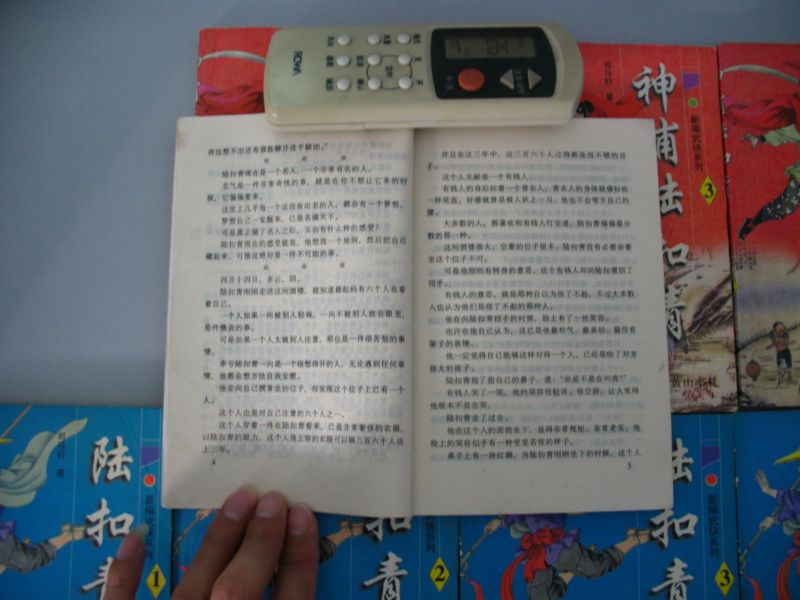 ROWA
26
神捕陆扣青
新编武侠系列
3
司马轩 著
黄山书社
我也想不出还有谁能解开这个疑团。
※ ※ ※
陆扣青现在是一个名人,一个非常有名的人。
名气是一件非常奇怪的事,就是在你不想让它来的时
候,它偏偏要来。
这世上几乎每一个还没有出名的人,都会有一个梦想。
梦想自己一觉醒来,已是名满天下。
可是真正做了名人之后,又会有什么样的感受?
陆扣青现在的感受就是,他想找一个地洞,然后把自己
藏起来,可惜这绝对是一件不可能的事。
※ ※ ※
四月十四日,多云,阴。
陆扣青刚刚走进这间酒楼,就知道最起码有六个人在看
着自己。
一个人如果一向被别人轻视,一向不被别人放在眼里,
是件懊丧的事。
可是如果一个人太被别人注意,那也是一件很苦恼的事
情。
幸亏陆扣青一向是一个很想得开的人,无论遇到任何事
情,他都会想方法自我安慰。
他走向自己惯常坐的位子,却发现这个位子上已有一个
人。
这个人也是对自己注意的六十个人之一。
这个人穿着一件在陆扣青看来,已是非常奢侈的衣服,
以陆扣青的眼力,这个人身上穿的衣服可以够三百六十个人活
上三年。
4
并且在这三年中,这三百六十个人过得都是很不错的日
子。
这个人无疑是一个有钱人。
有钱人的身后站着一个青衣人,青衣人的身体就像标枪
一样笔直,好像就算是被人砍上一刀,他也不会弯下自己的
腰。
大多数的人,都喜欢和有钱人打交道,陆扣青偏偏是少
数的那一种。
这间酒楼很大,空着的位子很多,陆扣青没有必要非要
坐这个位子不可。
可是他刚刚有转身的意思,这个有钱人却向陆扣青招了
招手。
有钱人的意思,就是那种自以为很了不起,不过大多数
人也认为他们是很了不起的那种人。
他在向陆扣青招手的时候,脸上有了一丝笑容。
也许在他自己认为,这已是他最和气、最亲切、最没有
架子的表情。
他一定觉得自己能够这样对待一个人,已经是给了对方
很大的面子。
陆扣青指了指自己的鼻子,道:“你是不是在叫我?”
有钱人笑了一笑,他的笑容很轻淡,很空洞,让人觉得
他根本不是在笑。
陆扣青走了过去。
他在这个人的面前坐下,显得非常规矩,非常老实,他
脸上的笑容似乎有一种受宠若惊的样子。
桌子上有一块红绸,当陆扣青刚刚坐下的时候,这个人
5
陆扣青
新编武侠系列
司马轩 著
1
扣青
2
陆扣青
新编武侠系列
3